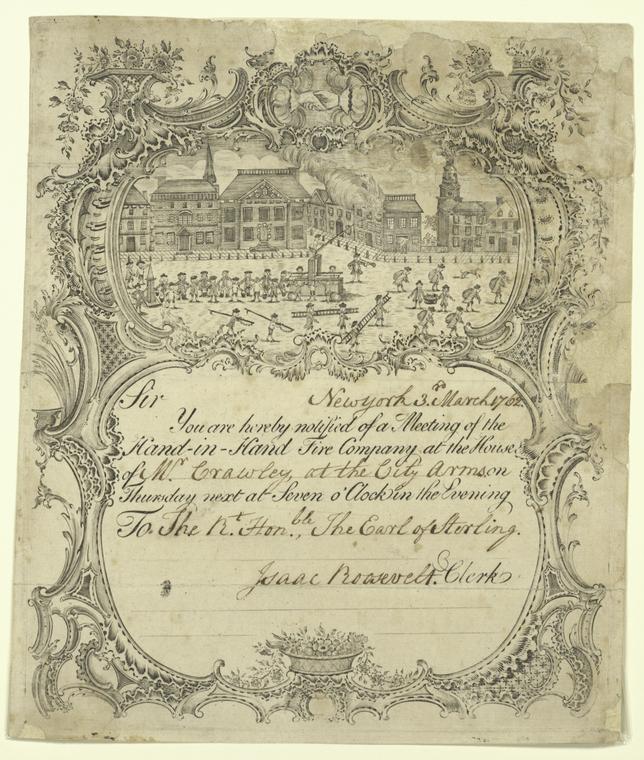 Sir New york 3.r March 1762
You are hereby notified of a Meeting of the
Hand-in-Hand Fire Company at the House
of Mr. Crawley, at the City Arms on
Thursday next at Seven o'Clock in the Evening
To The Rt. Hon.ble, The Earl of Sterling.
Isaac Roosevelt. Clerk